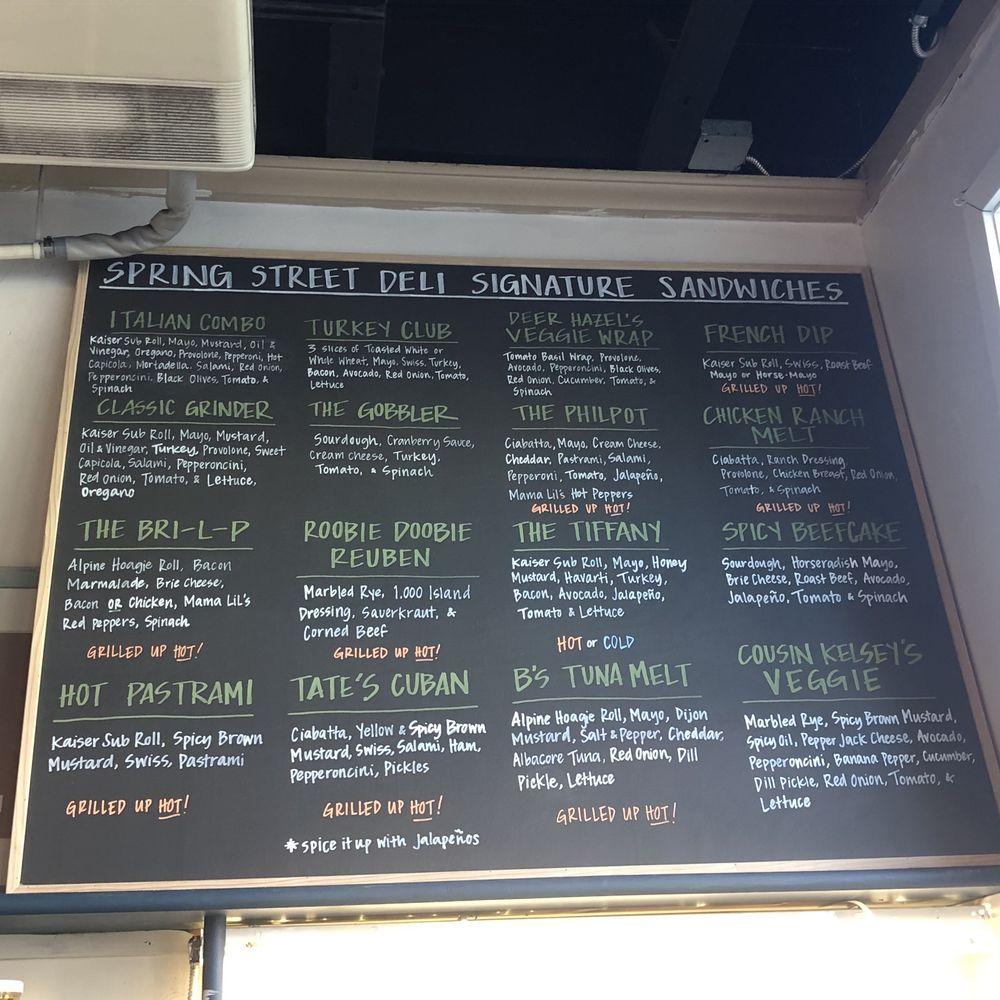 SPRING STREET DELI SIGNATURE SANDWICHES
ITALIAN COMBO
Kaiser Sub Roll, Mayo, Mustard, Oil &
Vinegar, Oregano, Provolone, Pepperoni, Hot
Capicola, Mortadella, Salami, Red Onion,
Pepperoncini, Black Olives, Tomato, &
Spinach
TURKEY CLUB
3 slices of Toasted White or
Whole Wheat, Mayo, Swiss, Turkey,
Bacon, Avocado, Red Onion, Tomato,
Lettuce
DEER HAZEL'S
VEGGIE WRAP
Tomato Basil Wrap, Provolone,
Avocado, Pepperoncini, Black Olives,
Red Onion, Cucumber, Tomato, &
Spinach
FRENCH DIP
Kaiser Sub Roll, Swiss, Roast Beef
Mayo or Horse-Mayo
GRILLED UP HOT!
CLASSIC GRINDER
Kaiser Sub Roll, Mayo, Mustard,
Oil & Vinegar, Turkey, Provolone, Sweet
Capicola, Salami, Pepperoncini,
Red Onion, Tomato, & Lettuce,
Oregano
THE GOBBLER
Sourdough, Cranberry Sauce,
Cream cheese, Turkey,
Tomato, & Spinach
THE PHILPOT
Ciabatta, Mayo, Cream Cheese,
Cheddar, Pastrami, Salami,
Pepperoni, Tomato, Jalapeño,
Mama Lil's Hot Peppers
GRILLED UP HOT!
CHICKEN RANCH
MELT
Ciabatta, Ranch Dressing
Provolone, Chicken Breast, Red Onion,
Tomato, & Spinach
GRILLED UP HOT!
THE BRI-L-P
Alpine Hoagie Roll, Bacon
Marmalade, Brie Cheese,
Bacon OR Chicken, Mama Lil's
Red Peppers, Spinach
GRILLED UP HOT!
ROOBIE DOOBIE
REUBEN
Marbled Rye, 1,000 Island
Dressing, Sauerkraut, &
Corned Beef
GRILLED UP HOT!
THE TIFFANY
Kaiser Sub Roll, Mayo, Honey
Mustard, Havarti, Turkey,
Bacon, Avocado, Jalapeño,
Tomato & Lettuce
HOT or COLD
SPICY BEEFCAKE
Sourdough, Horseradish Mayo,
Brie Cheese, Roast Beef, Avocado,
Jalapeño, Tomato & Spinach
HOT PASTRAMI
Kaiser Sub Roll, Spicy Brown
Mustard, Swiss, Pastrami
GRILLED UP HOT!
TATE'S CUBAN
Ciabatta, Yellow & Spicy Brown
Mustard, Swiss, Salami, Ham,
Pepperoncini, Pickles
GRILLED UP HOT!
*spice it up with Jalapeños
B'S TUNA MELT
Alpine Hoagie Roll, Mayo, Dijon
Mustard, Salt & Pepper, Cheddar,
Albacore Tuna, Red Onion, Dill
Pickle, Lettuce
GRILLED UP HOT!
COUSIN KELSEY'S
VEGGIE
Marbled Rye, Spicy Brown Mustard,
Spicy Oil, Pepper Jack Cheese, Avocado,
Pepperoncini, Banana Pepper, Cucumber,
Dill Pickle, Red Onion, Tomato, &
Lettuce